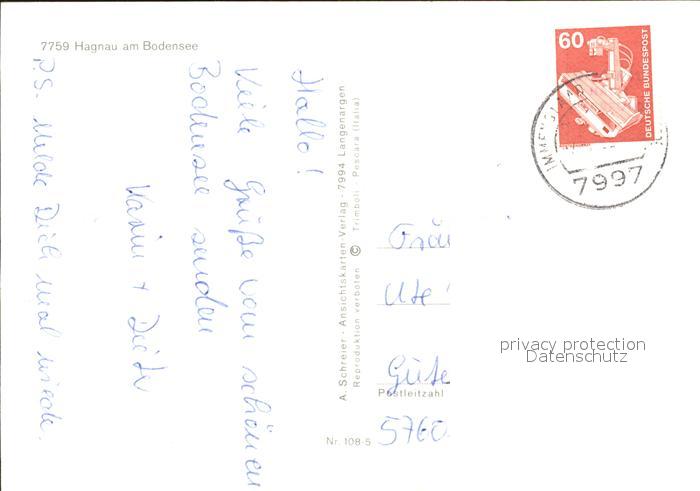 7759 Hagnau am Bodensee
Hallo!
Viele Grüße vom schönen
Bodensee senden
Karin + Dieter
P.S. Melde Dich mal wieder.
A. Schreier · Ansichtskarten Verlag · 7994 Langenargen
Reproduktion verboten © Trimboli - Pescara (Italia)
Nr. 108-5
60
DEUTSCHE BUNDESPOST
7997
Ute
Güte
Postleitzahl
5760
privacy protection
Datenschutz